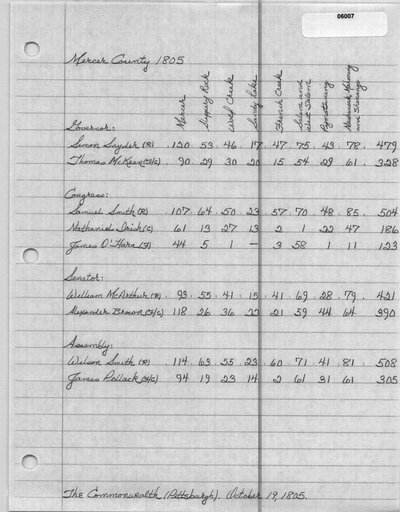 06007
Mercer County 1805
Mercer
Slippery Rock
Wolf Creek
Sandy Lake
French Creek
Salem and
West Salem
Pymatuning
Mahoning
and Shenango
Governor:
Simon Snyder (R) 120 53 46 17 47 75 43 78 479
Thomas McKean (F/C) 90 29 30 20 15 54 29 61 328
Congress:
Samuel Smith (R) 107 64 50 23 57 70 48 85 504
Nathaniel Irish (C) 61 13 27 13 2 1 22 47 186
James O'Hara (F) 44 5 1 — 3 58 1 11 123
Senator:
William McArthur (R) 93 55 41 15 41 69 28 79 421
Alexander Brown (F/C) 118 26 36 22 21 59 44 64 390
Assembly:
Wilson Smith (R) 114 63 55 23 60 71 41 81 508
James Pollack (F/C) 94 19 23 14 2 61 31 61 305
The Commonwealth (Pittsburgh). October 19, 1805.